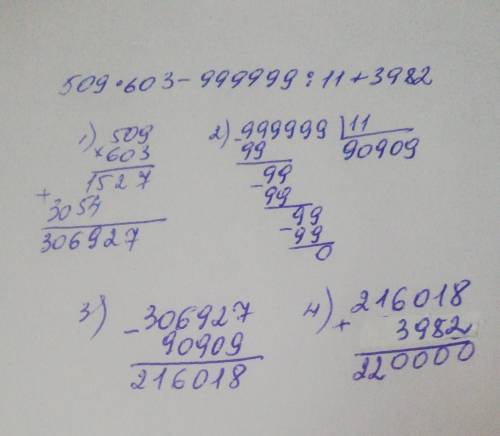 509·603-999999:11+3982
1) 509
×603
1527
+
3054
306927
2) 999999 | 11
-99 90909
99
-99
99
-99
0
3) 306927
-90909
216018
4) 216018
+3982
220000